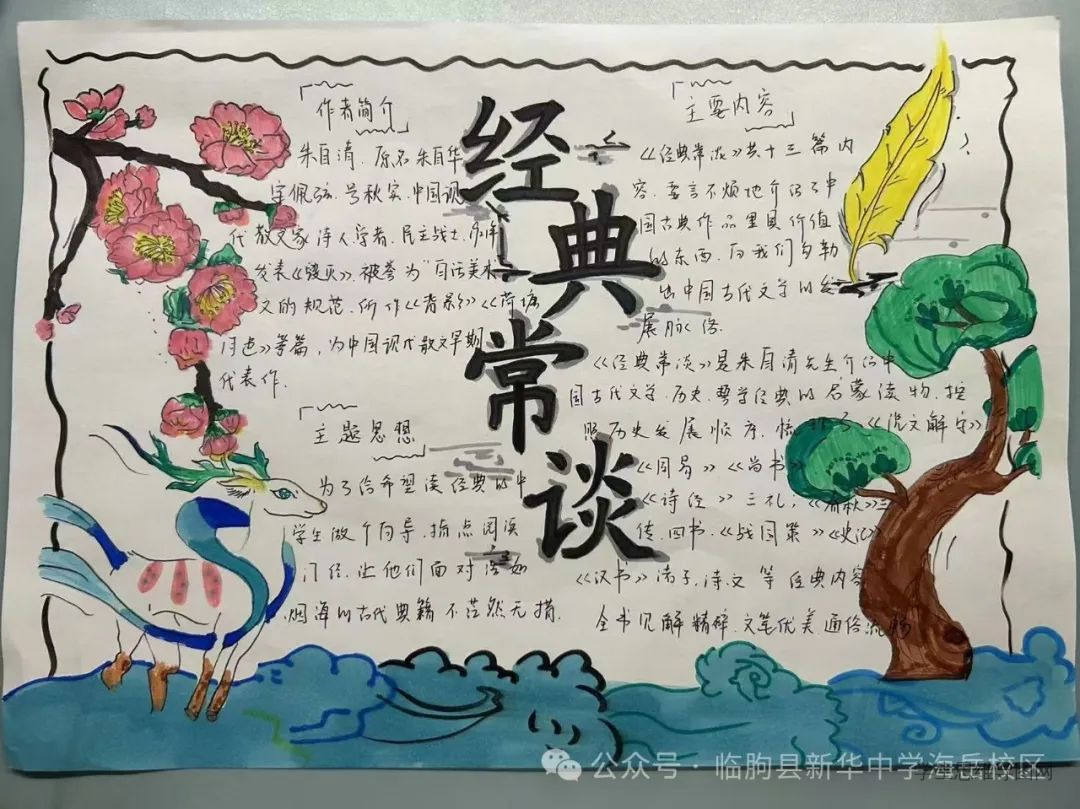 经典常谈
作者简介
朱自清,原名朱自华
字佩弦,号秋实,中国现
代散文家 诗人 学者、民主战士,
发表《毁灭》,被誉为“白话美术
文的规范,所作《背影》《荷塘
月色》等篇,为中国现代散文早期
代表作.
主题思想
为了给希望读经典的中
学生做个向导,指点阅读
门径,让他们面对浩如
烟海的古代典籍不茫然无措.
主要内容
《经典常谈》共十三篇内
容,要言不烦地介绍了中
国古典作品里具价值
的东西,向我们勾勒
出中国古代文学的发
展脉络.
《经典常谈》是朱自清先生介绍中
国古代文学、历史、哲学经典的启蒙读物,按
照历史发展顺序,梳理了《说文解字》
《周易》《尚书》
《诗经》三礼,《春秋》三
传,四书,《战国策》《史记》
《汉书》诸子,诗文等经典内容
全书见解精辟、文笔优美、通俗流畅
公众号·临朐县新华中学海岳校区